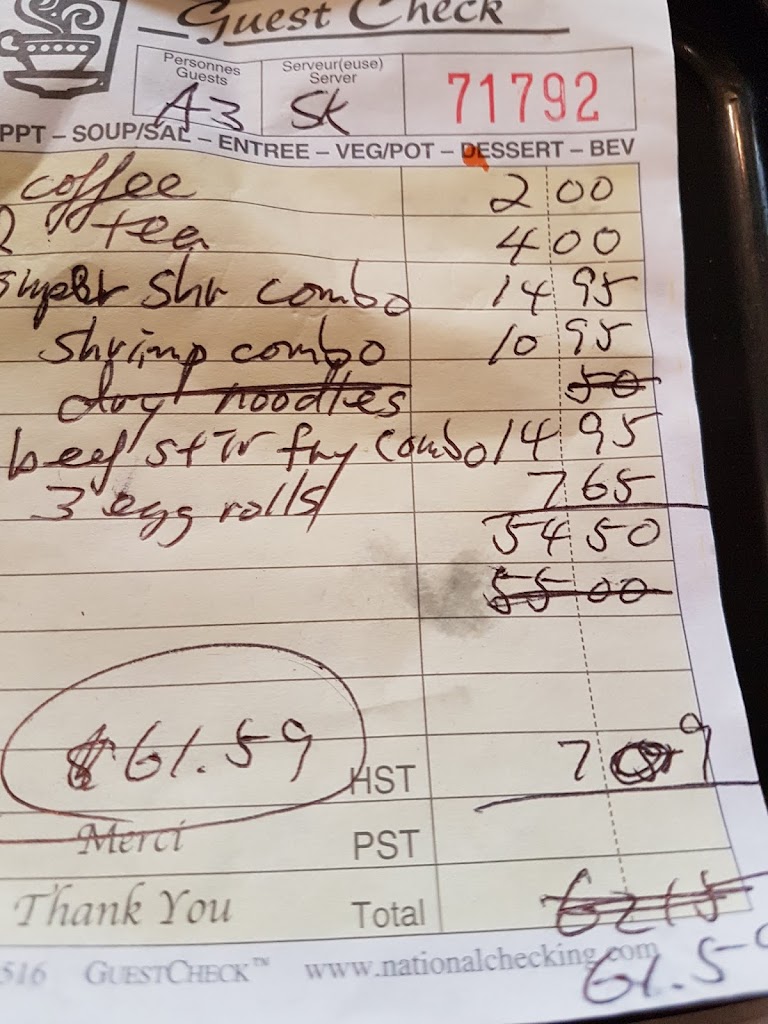 Guest Check
Personnes Guests A-3 Serveur(euse) Server SK 71792
PPT – SOUP/SAL – ENTREE – VEG/POT – DESSERT – BEV
coffee 2 00
2 tea 4 00
super shr combo 14 95
shrimp combo 10 95
dry noodles 50
beef stir fry combo 14 95
3 egg rolls 7 65
54 50
55 00
$61.59 HST 7 09
Merci PST
Thank You Total 62 15
516 GUESTCHECK™ www.nationalchecking.com
61.59